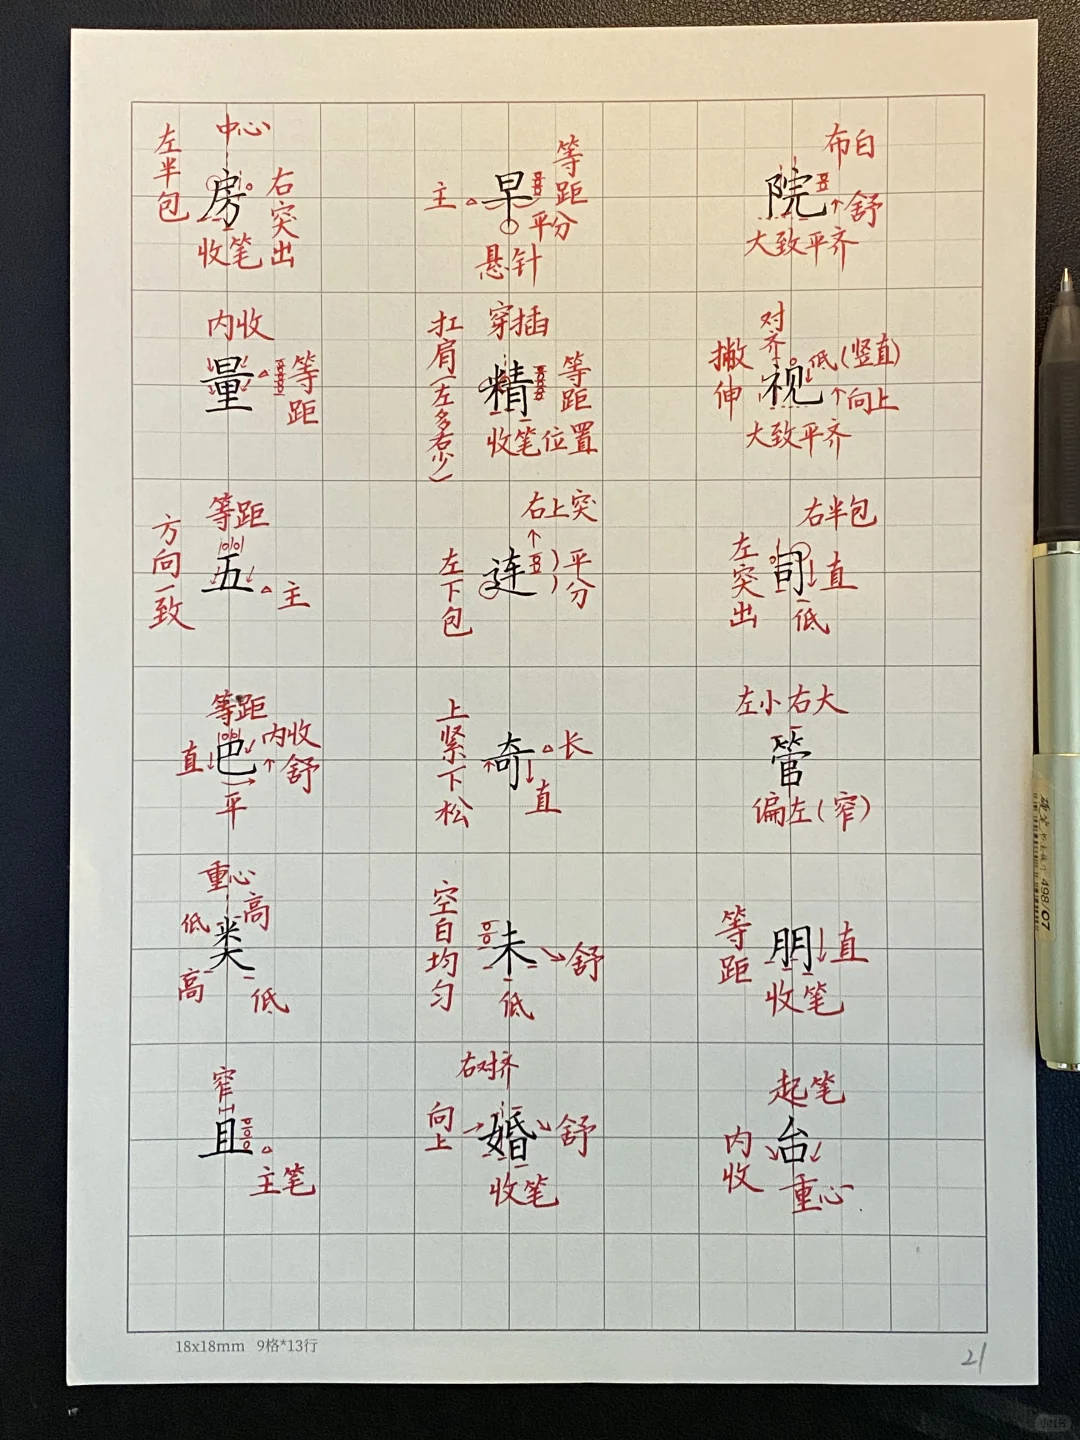 左半包
中心
房
右突出
收笔
主
早
等距
平分
悬针
布白
院
舒
大致平齐
内收
量
等距
扛肩(左多右少)
穿插
精
等距
收笔位置
撇伸
对齐
视
低(竖直)
向上
大致平齐
方向一致
等距
五
主
左下包
右上突
连
平分
右半包
左突出
司
直
低
等距
直
巴
内收
舒
平
上紧下松
奇
长
直
左小右大
管
偏左(窄)
重心
低
高
类
高
低
空白均匀
未
舒
低
等距
朋
直
收笔
窄
且
主笔
右对齐
向上
婚
舒
收笔
起笔
内收
台
重心
18x18mm 9格*13行
21
498/07